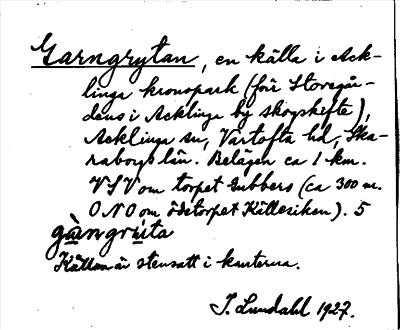 Garngrytan, en källa i Ack-
linga kronopark (för Storegår-
dens i Acklinga by skogskifte),
Acklinga sn, Vartofta hd, Ska-
raborgs län. Belägen ca 1 km.
VSV om torpet Gubbero (ca 300 m.
ONO om ödetorpet Källesiken). 5
gàngrùita
Källan är stensatt i kanterna.
J. Lundahl 1927.